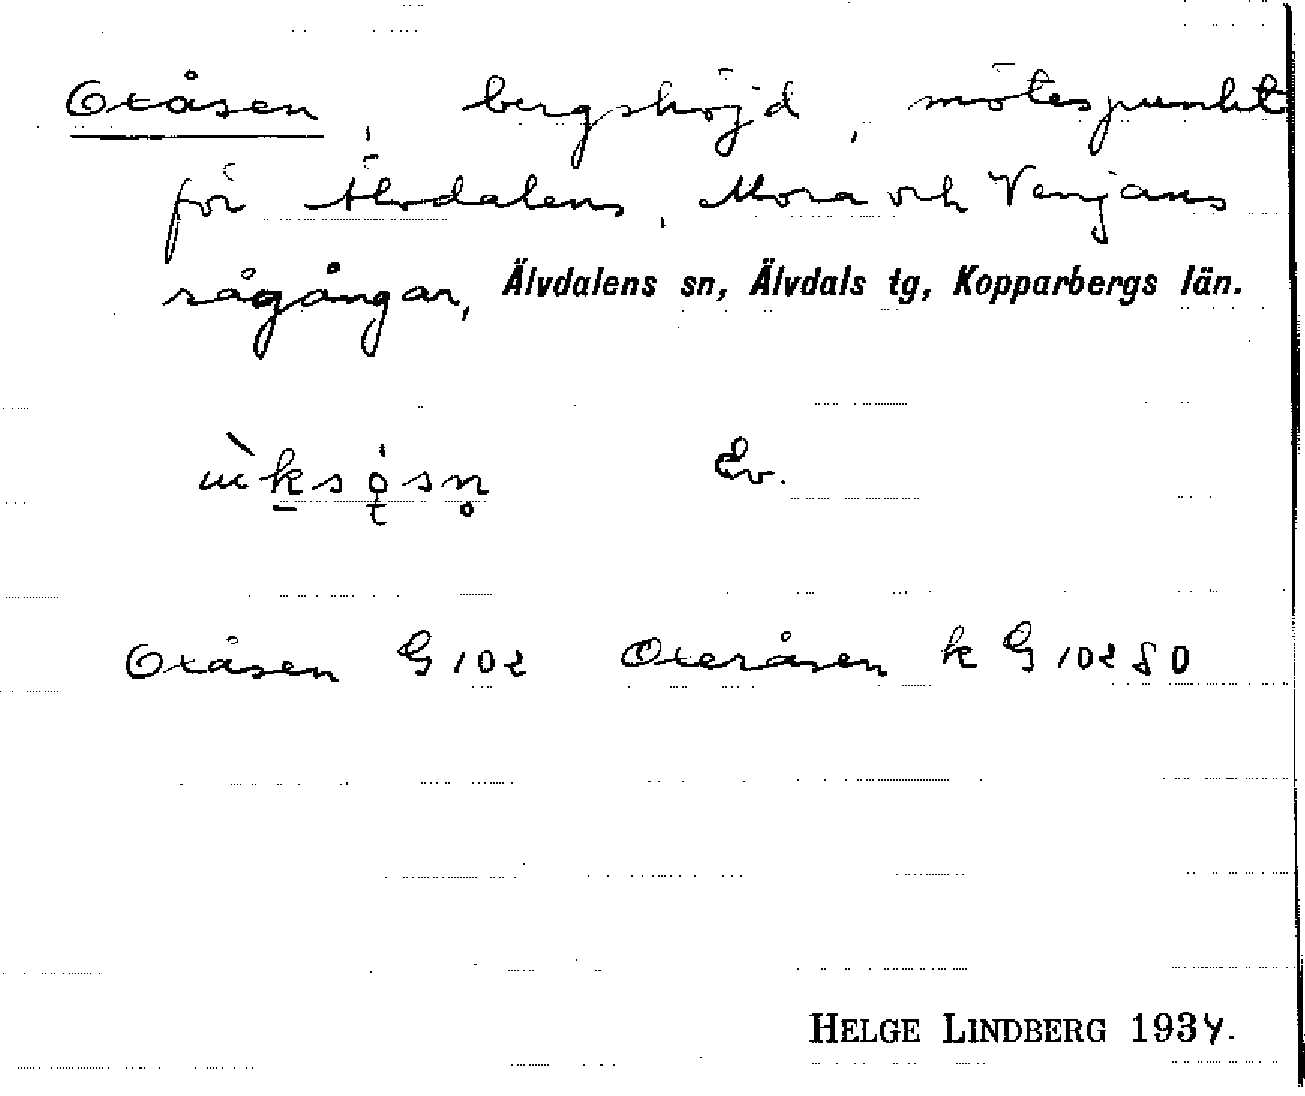 Oxåsen, bergshöjd, mötespunkt
för Älvdalens, Mora och Venjans
rågångar, Älvdalens sn, Älvdals tg, Kopparbergs län.
Ev.
Oxåsen G 102 Oxeråsen k G 102 80
HELGE LINDBERG 1934.